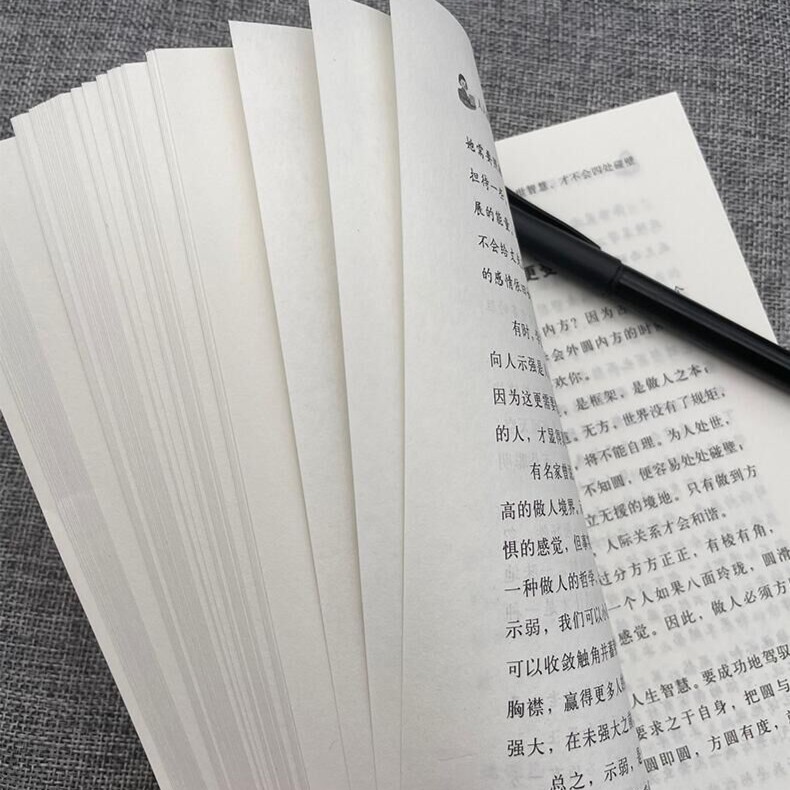 她需要
担待一些
展的能量
不会给
的感情
有时,
向人示强是
因为这更需要
的人,才显得
有名家曾
高的做人境界,
惧的感觉,但事
一种做人的哲学,
示弱,我们可以
可以收敛触角并
胸襟,赢得更多人
强大,在未强大之
总之,示弱,
世智慧,才不会四处碰壁
更要
内方?因为
会外圆内方的时候
欢你。
,是框架,是做人之本;
。无方,世界没有了规矩,
,将不能自理。为人处世,
不知圆,便容易处处碰壁;
立无援的境地。只有做到方
,人际关系才会和谐。
过分方方正正,有棱有角,
一个人如果八面玲珑,圆滑
感觉。因此,做人必须方
人生智慧。要成功地驾驭
要求之于自身,把圆与
圆即圆,方圆有度,